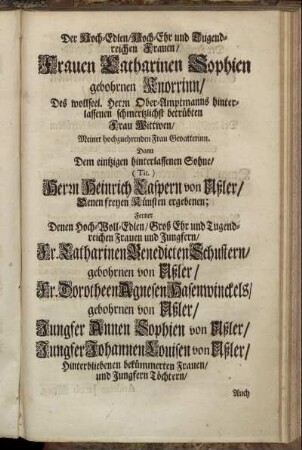 Der Hoch-Edlen/Hoch-Ehr und Tugend-
reichen Frauen/
Frauen Catharinen Sophien
gebohrnen Knorrinn/
Des wollseel. Herrn Ober-Amptmanns hinter-
lassenen schmertzlichst betrübten
Frau Wittwen/
Meiner hochzuehrenden Frau Gevatterinn.
Dann
Dem eintzigen hinterlassenen Sohne/
(Tit.)
Herrn Heinrich Caspern von Ußler/
Denen freyen Künsten ergebenen;
Ferner
Denen Hoch-Woll-Edlen/ Groß Ehr und Tugend-
reichen Frauen und Jungfern/
Fr. Catharinen Benedicten Schustern/
gebohrnen von Ußler/
Fr. Dorotheen Agnesen Hasenwinckels/
gebohrnen von Ußler/
Jungfer Annen Sophien von Ußler/
Jungfer Johannen Louisen von Ußler/
Hinterbliebenen bekümmerten Frauen/
und Jungfern Töchtern/
Auch